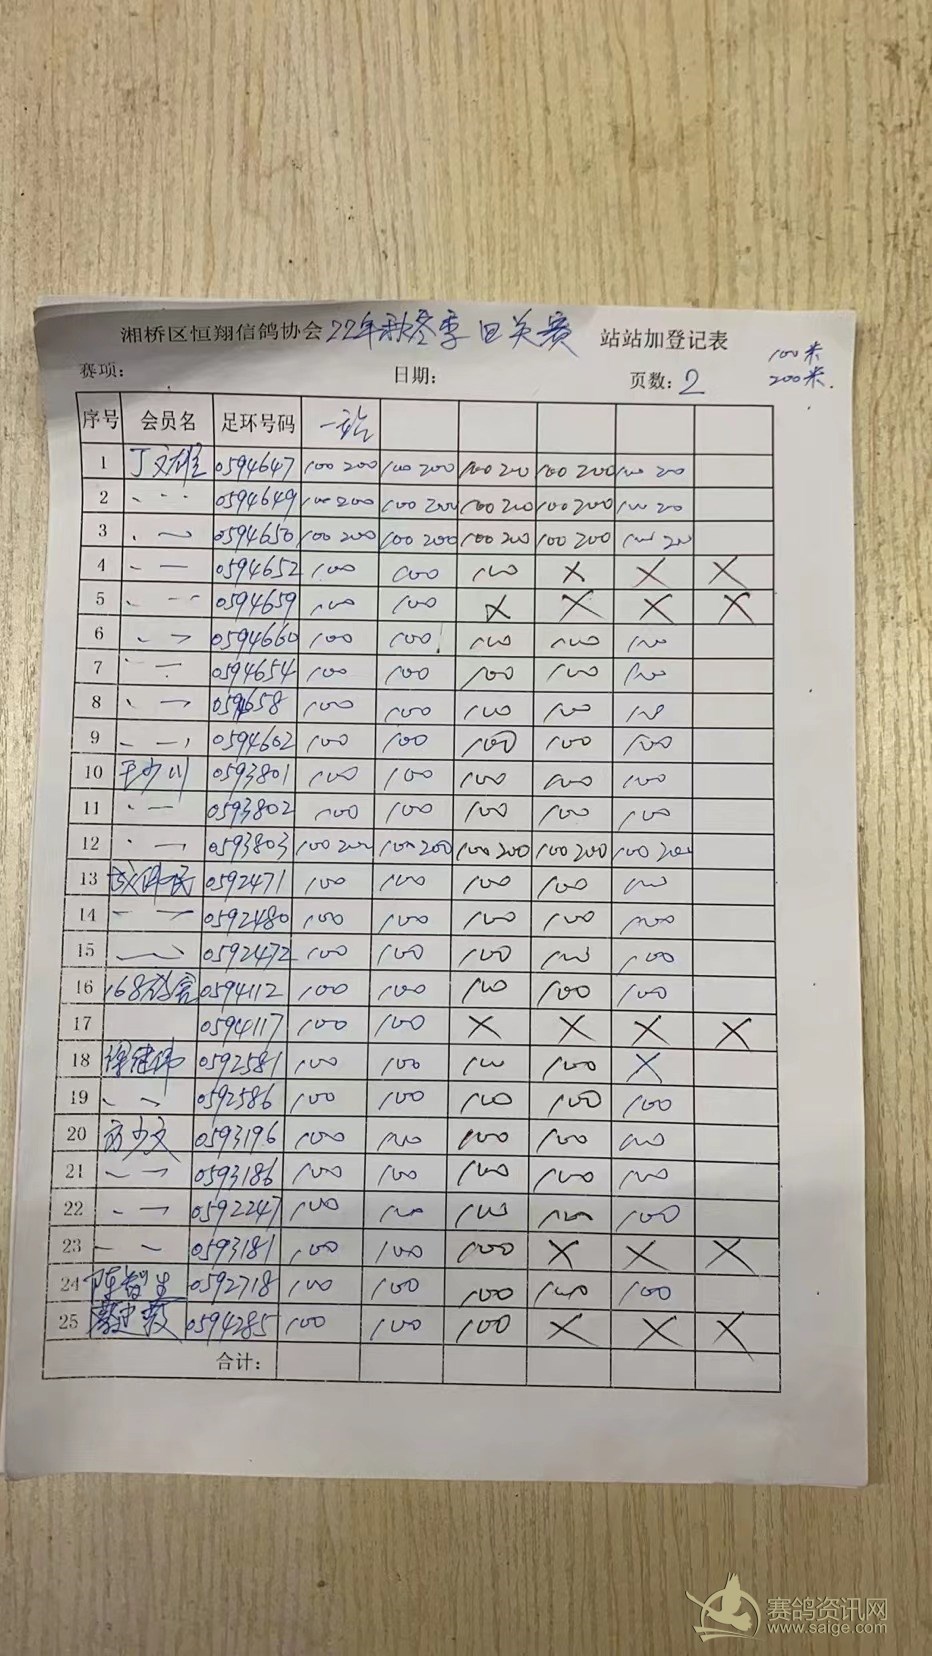 湘桥区恒翔信鸽协会22年秋冬季四关赛 站站加登记表
赛项: 日期: 页数: 2 100米
200米
序号 会员名 足环号码 一站
1 丁文雄 0594647 100 200 100 200 100 200 100 200 100 200
2 0594649 100 200 100 200 100 200 100 200 100 200
3 0594650 100 200 100 200 100 200 100 200 100 200
4 0594652 100 100 100 X X X
5 0594659 100 100 X X X X
6 0594660 100 100 100 100 100
7 0594654 100 100 100 100 100
8 0594658 100 100 100 100 100
9 0594602 100 100 100 100 100
10 王少川 0593801 100 100 100 100 100
11 0593802 100 100 100 100 100
12 0593803 100 200 100 200 100 200 100 200 100 200
13 0592471 100 100 100 100 100
14 0592480 100 100 100 100 100
15 0592472 100 100 100 100 100
16 168 0594112 100 100 100 100 100
17 0594117 100 100 X X X X
18 0592581 100 100 100 100 X
19 0592586 100 100 100 100 100
20 方少文 0593196 100 100 100 100 100
21 0593186 100 100 100 100 100
22 0592247 100 100 100 100 100
23 0593181 100 100 100 X X X
24 陈智生 0592718 100 100 100 100 100
25 0594285 100 100 100 X X X
合计:
赛鸽资讯网
www.saige.com